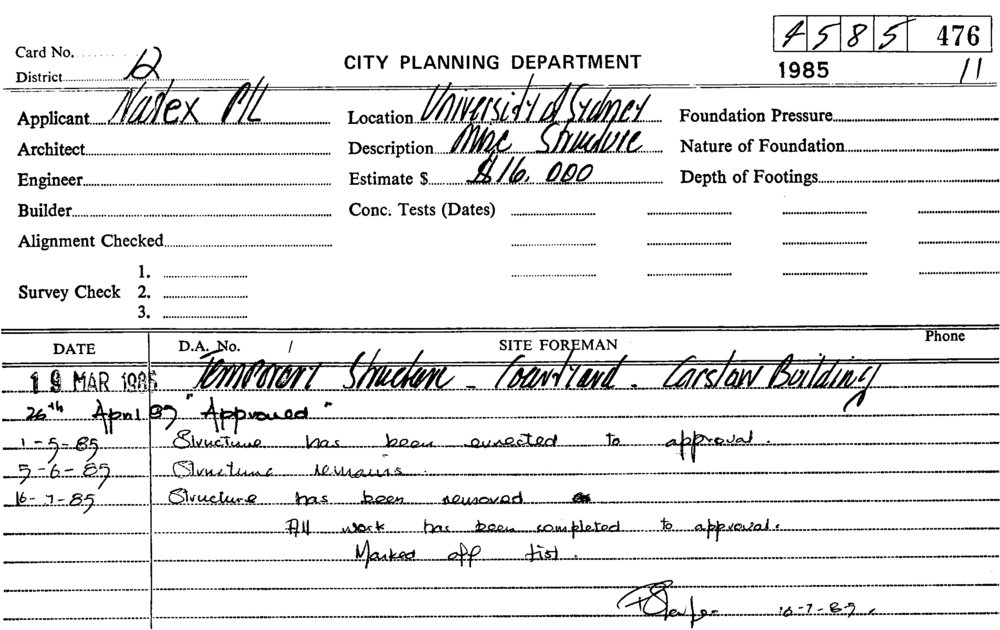 4585 476
Card No.
CITY PLANNING DEPARTMENT
District 12
1985 11
Applicant Natex P/L
Location University of Sydney
Foundation Pressure
Architect
Description Misc Structure
Nature of Foundation
Engineer
Estimate $ $16,000
Depth of Footings
Builder
Conc. Tests (Dates)
Alignment Checked
1.
Survey Check 2.
3.
DATE D.A. No. / SITE FOREMAN Phone
19 MAR 1985 Temporary Structure - Courtyard - Carslaw Building
26th April 85 "Approved"
1-5-85 Structure has been errected to approval.
5-6-85 Structure remains.
16-7-85 Structure has been removed
All work has been completed to approval.
Marked off list.
16-7-85.